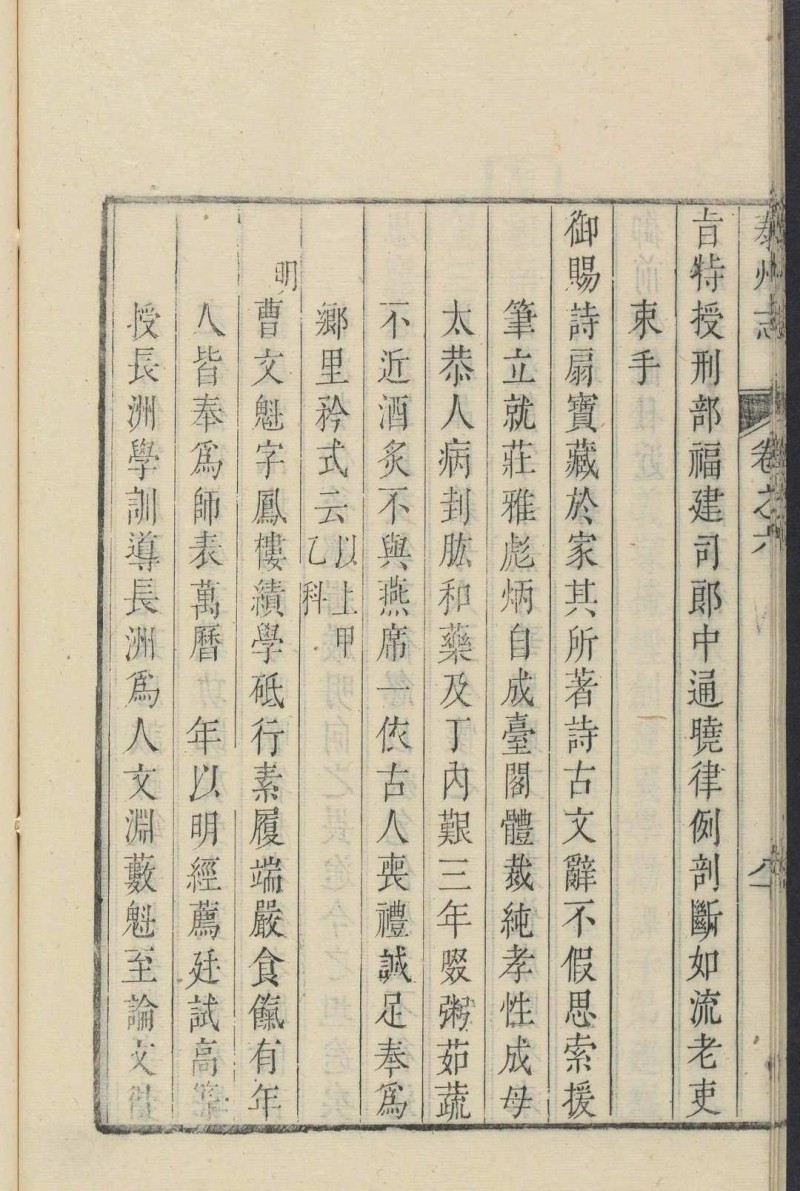 泰州志 卷之六
旨特授刑部福建司郎中通曉律例剖斷如流老吏
束手
御賜詩扇寶藏於家其所著詩古文辭不假思索援
筆立就莊雅彪炳自成臺閣體裁純孝性成母
太恭人病刲肱和藥及丁內艱三年啜粥茹蔬
不近酒炙不與燕席一依古人喪禮誠足奉爲
鄉里矜式云以上甲乙科
明
曹文魁字鳳樓績學砥行素履端嚴食餼有年
人皆奉爲師表萬曆 年以明經薦廷試高等
授長洲學訓導長洲爲人文淵藪魁至論文